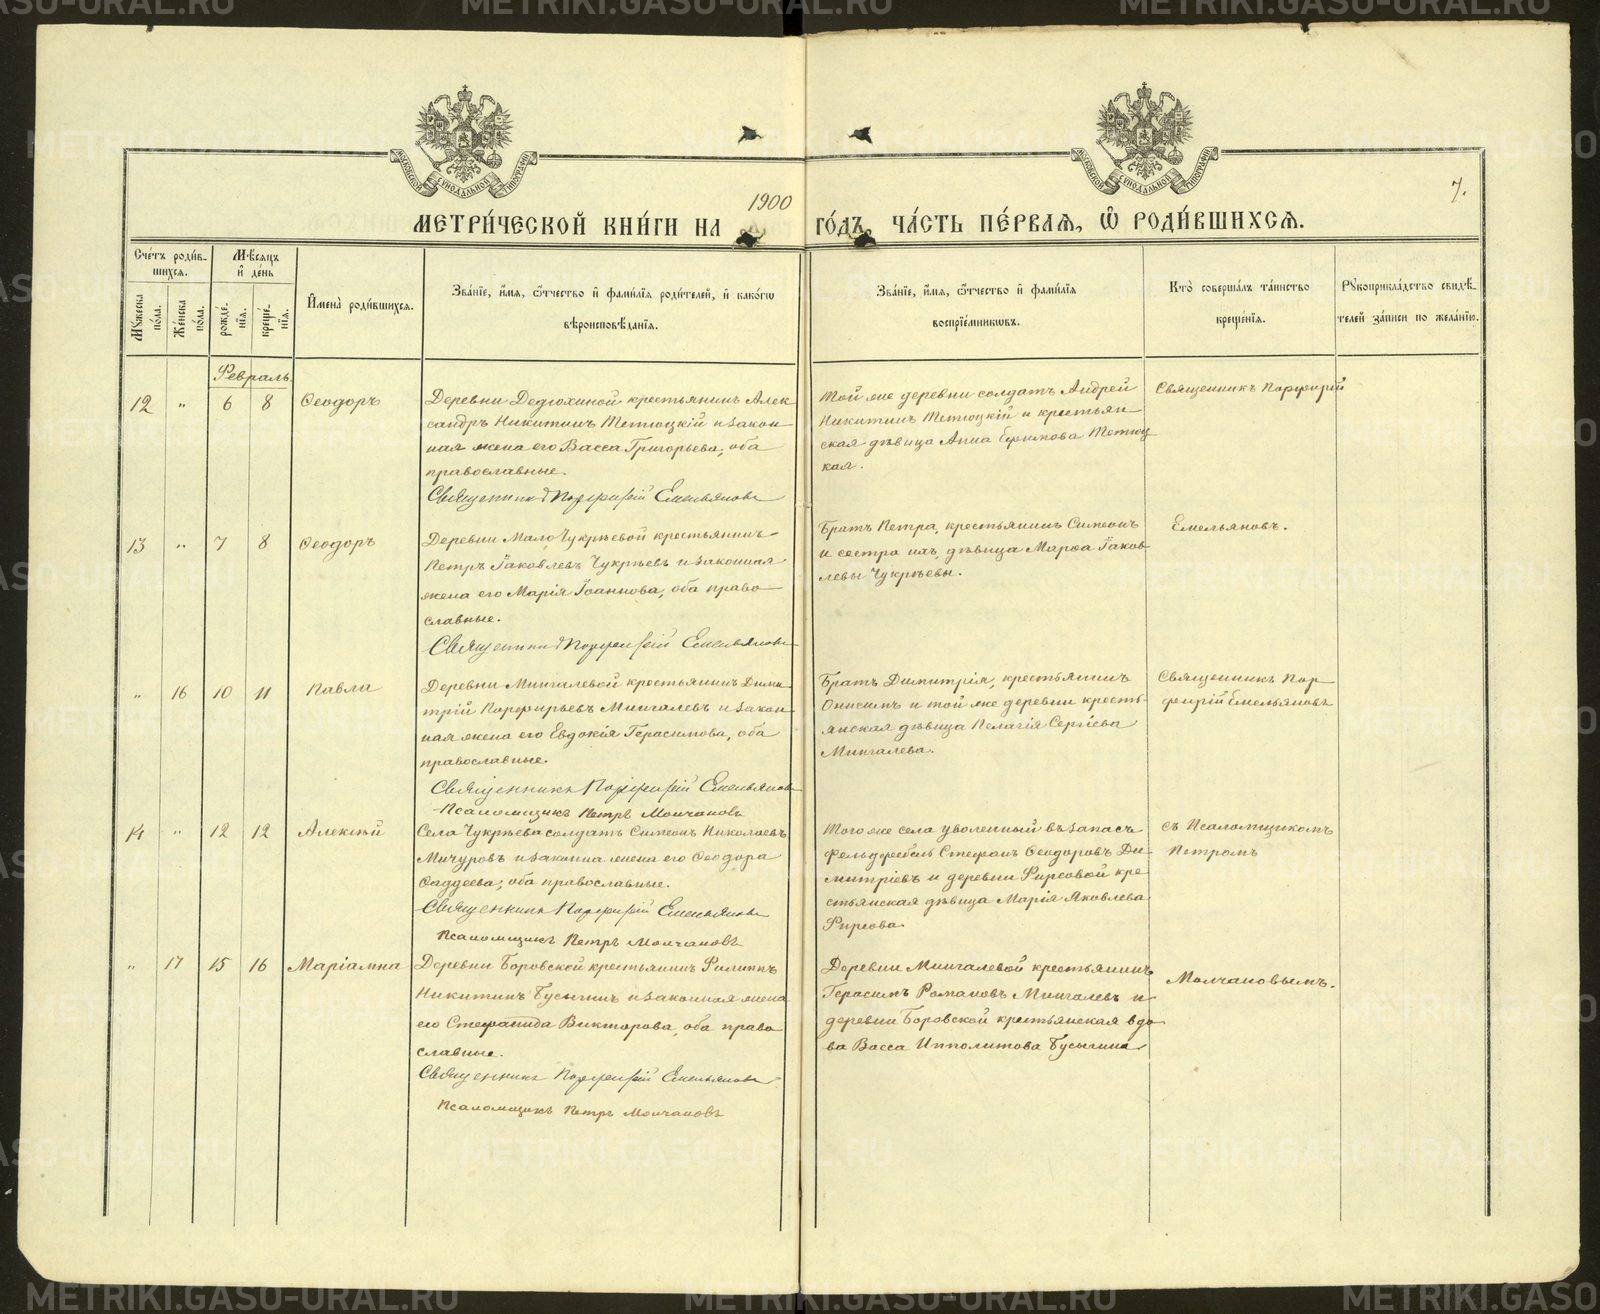 METRIKI.GASO-URAL.RU
МОСКОВСКОЙ СУНОДАЛЬНОЙ ТИПОГРАФІИ
МОСКОВСКОЙ СУНОДАЛЬНОЙ ТИПОГРАФІИ
7.
МЕТРИ́ЧЕСКОЙ КНИ́ГИ НА 1900 ГО́ДЪ, ЧА́СТЬ ПЕ́РВАѦ, Ѡ҆ РОДИ́ВШИХСѦ.
Сче́тъ роди́в-
шихсѧ.
Мꙋ́жеска по́ла.
Же́нска по́ла.
Мѣ́сѧцъ
и҆ де́нь
рожде́-
нїѧ.
креще́-
нїѧ.
И҆мена̀ роди́вшихсѧ.
Зва́нїе, и҆́мѧ, ѻ҆́тчество и҆ фами́лїѧ роди́телей, и҆ како́гѡ
вѣроисповѣ́данїѧ.
Зва́нїе, и҆́мѧ, ѻ҆́тчество и҆ фами́лїѧ
воспрїе́мникѡвъ.
Кто̀ соверша́лъ та́инство
креще́нїѧ.
Рꙋкоприкла́дство свидѣ́-
телей за́писи по жела́нїю.
Февраль.
12 „ 6 8 Ѳеодоръ
Деревни Дедюхиной крестьянинъ Алек
сандръ Никитинъ Тетюцкій и закон
ная жена его Васса Григорьева, оба
православные.
Священникъ Порфирій Емельяновъ
Той же деревни солдатъ Андрей
Никитинъ Тетюцкій и крестьян-
ская дѣвица Анна Ефимова Тетюц
кая.
Священникъ Порфирій
13 „ 7 8 Ѳеодоръ
Деревни Мало Чукрѣевой крестьянинъ
Петръ Іаковлевъ Чукрѣевъ и законная
жена его Марія Іоаннова, оба право
славные.
Священникъ Порфирій Емельяновъ
Братъ Петра, крестьянинъ Симеонъ
и сестра ихъ, дѣвица Марѳа Іаков
левы Чукрѣевы.
Емельяновъ.
„ 16 10 11 Павла
Деревни Мингалевой крестьянинъ Дими
трій Порфирьевъ Мингалевъ и закон
ная жена его Евдокія Герасимова, оба
православные.
Священникъ Порфирій Емельяновъ
Псаломщикъ Петръ Молчановъ
Братъ Димитрія, крестьянинъ
Онисимъ и той же деревни кресть-
янская дѣвица Пелагія Сергіева
Мингалева.
Священникъ Пор-
фирій Емельяновъ
14 „ 12 12 Алексѣй
Села Чукрѣева солдатъ Симеонъ Николаевъ
Мичуровъ и законна жена его Ѳеодора
Ѳаддеева, оба православные.
Священникъ Порфирій Емельяновъ
Псаломщикъ Петръ Молчановъ
Того же села уволенный въ запасъ
Фельдфебель Стефанъ Ѳеодоровъ Ди
митріевъ и деревни Фирсовой кре
стьянская дѣвица Марія Яковлева
Фирсова.
съ Псаломщикомъ
Петромъ
„ 17 15 16 Маріамна
Деревни Боровской крестьянинъ Филиппъ
Никитинъ Бусыгинъ и законная жена
его Стефанида Викторова, оба право
славные.
Священникъ Порфирій Емельяновъ
Псаломщикъ Петръ Молчановъ
Деревни Мингалевой крестьянинъ
Герасимъ Романовъ Мингалевъ и
деревни Боровской крестьянская вдо
ва Васса Ипполитова Бусыгина
Молчановымъ.